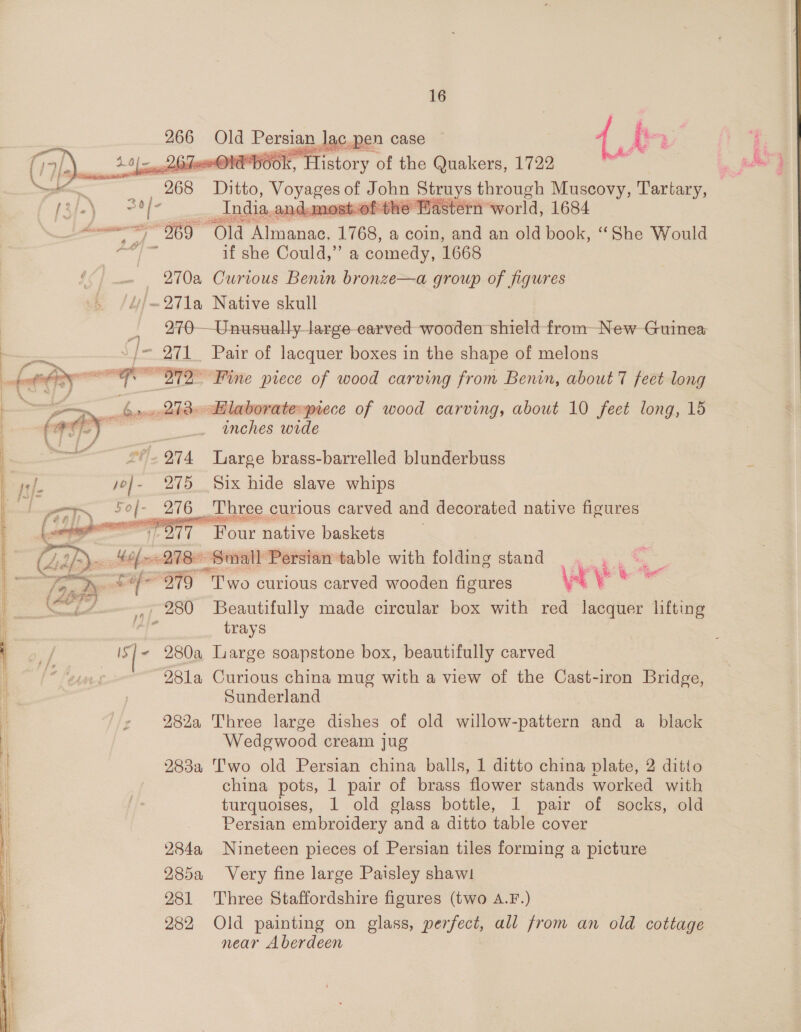 16
266 Old Persian lac pen case
17/- 20/- 267 Old book, History of the Quakers, 1722
268 Ditto, Voyages of John Struys through Muscovy, Tartary,
13/- 30/- India and most of the Eastern world, 1684
269 Old Almanac, 1768, a coin, and an old book, “She Would
if she Could,” a comedy, 1668
270a Curious Benin bronze—a group of figures
271a Native skull
270 Unusually large carved wooden shield from New Guinea
271 Pair of lacquer boxes in the shape of melons
272 Fine piece of wood carving from Benin, about 7 feet long
273 Elaborate piece of wood carving, about 10 feet long, 15
inches wide
274 Large brass-barrelled blunderbuss
10/- 275 Six hide slave whips
50/- 276 Three curious carved and decorated native figures
277 Four native baskets
278 Small Persian table with folding stand
279 Two curious carved wooden figures
280 Beautifully made circular box with red lacquer lifting
trays
15/- 280a Large soapstone box, beautifully carved
281a Curious china mug with a view of the Cast-iron Bridge,
Sunderland
282a Three large dishes of old willow-pattern and a black
Wedgwood cream jug
283a Two old Persian china balls, 1 ditto china plate, 2 ditto
china pots, 1 pair of brass flower stands worked with
turquoises, 1 old glass bottle, 1 pair of socks, old
Persian embroidery and a ditto table cover
284a Nineteen pieces of Persian tiles forming a picture
285a Very fine large Paisley shawl
281 Three Staffordshire figures (two A.F.)
282 Old painting on glass, perfect, all from an old cottage
near Aberdeen